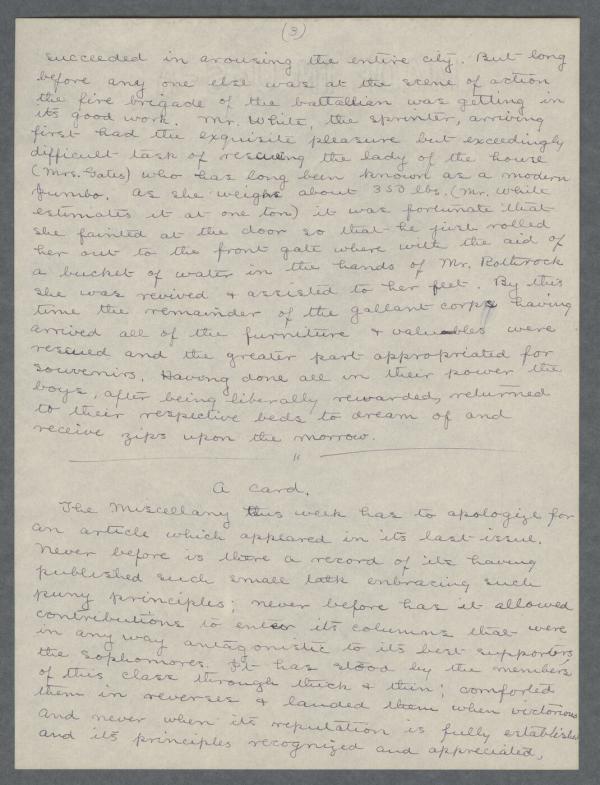 (3)
succeeded in arousing the entire city. But long
before any one else was at the scene of action
the fire brigade of the battallian was getting in
its good work. Mr. White, the sprinter, arriving
first had the exquisite pleasure but exceedingly
difficult task of rescueing the lady of the house
(Mrs. Gates) who has long been known as a modern
Jumbo. As she weighs about 350 lbs. (Mr. White
estimates it at one ton) it was fortunate that
she fainted at the door so that he just rolled
her out to the front gate where with the aid of
a bucket of water in the hands of Mr. Rothrock
she was revived & assisted to her feet. By this
time the remainder of the gallant corps having
arrived all of the furniture & valuables were
rescued and the greater part appropriated for
souvenirs. Having done all in their power the
boys, after being liberally rewarded, returned
to their respective beds to dream of and
receive zips upon the morrow.
"
A Card.
The Miscellany this week has to apologize for
an article which appeared in its last issue.
Never before is there a record of its having
published such small talk embracing such
puny principles; never before has it allowed
contributions to enter its columns that were
in any way antagonistic to its best supporters,
the Sophomores. It has stood by the members
of this class through thick & thin; comforted
them in reverses & lauded them when victorious
and never when its reputation is fully established
and its principles recognized and appreciated,